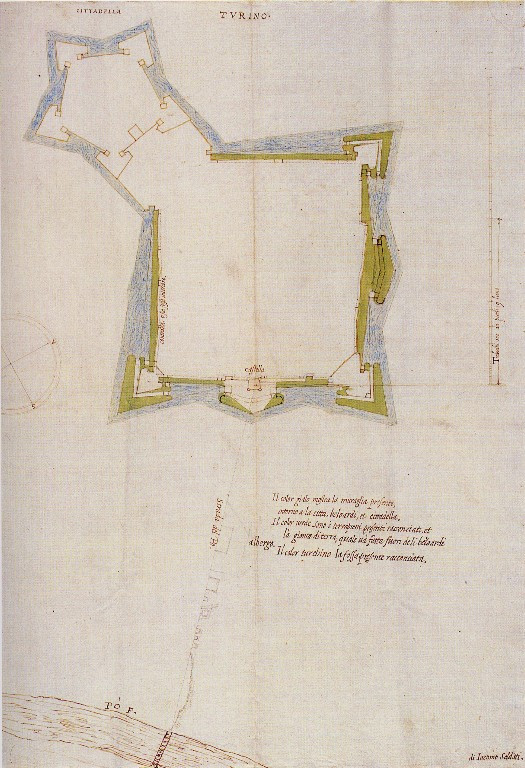 CITTADELLA
TVRINO·
castello
Strada di Pò
Il color giallo mostra la muraglia presente,
intorno a la città, beloardi, et cittadella.
Il color verde sono i terrapieni presenti racconciati, et
la gionta di terra, quale và fatta fuori deli beloardi
alberga.
Il color turchino la fossa presente racconciata.
PÒ F.
di Iacomo Soldati